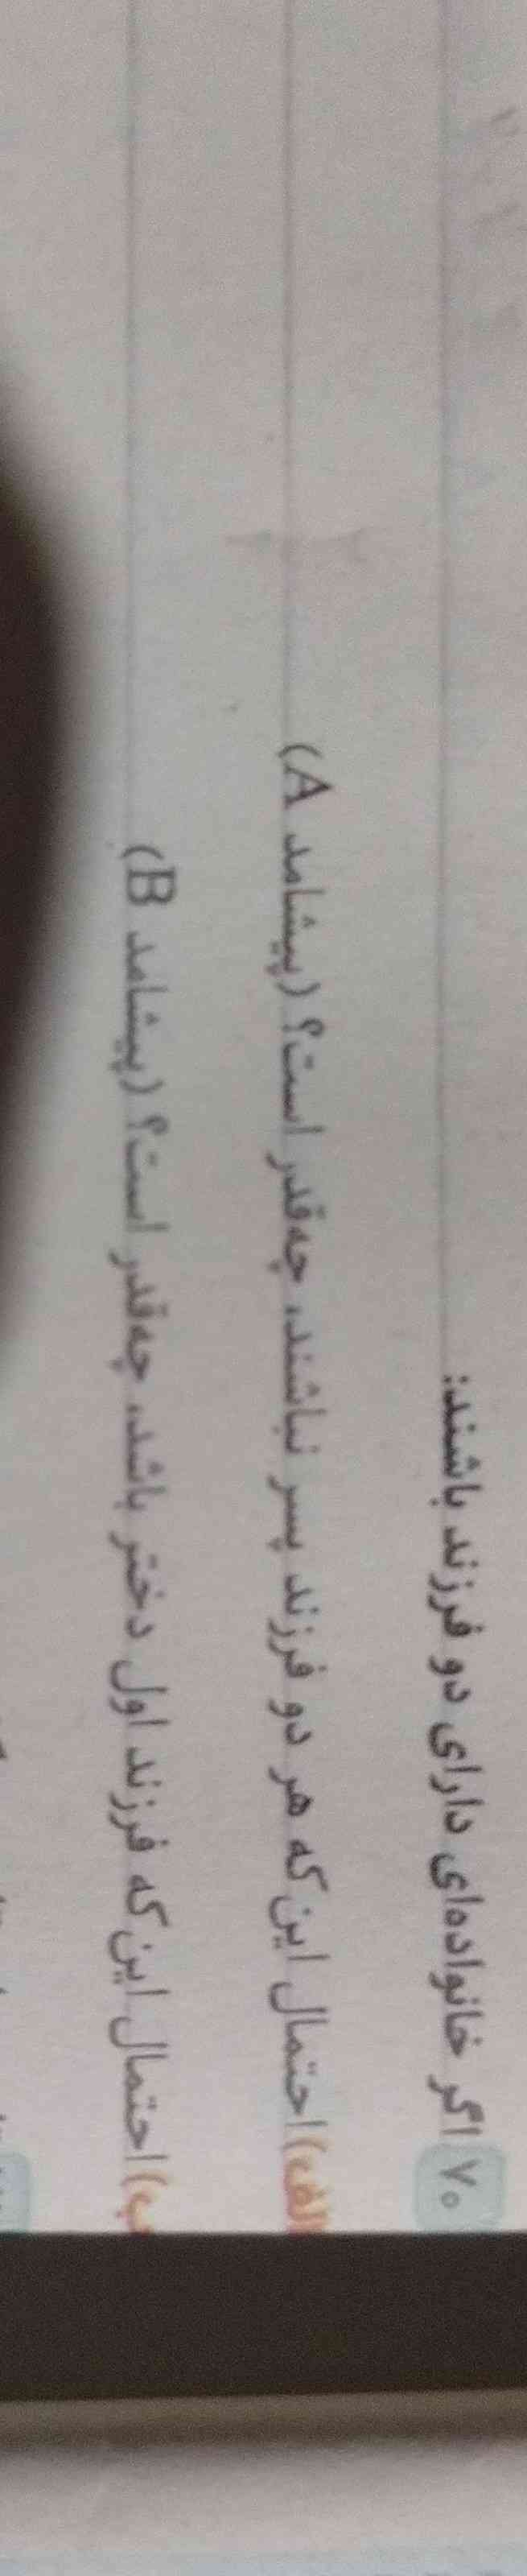 ۷۰ اگر خانواده‌ای دارای دو فرزند باشند:
الف) احتمال این‌که هر دو فرزند پسر نباشند، چه‌قدر است؟ (پیشامد A)
ب) احتمال این‌که فرزند اول دختر باشد، چه‌قدر است؟ (پیشامد B)